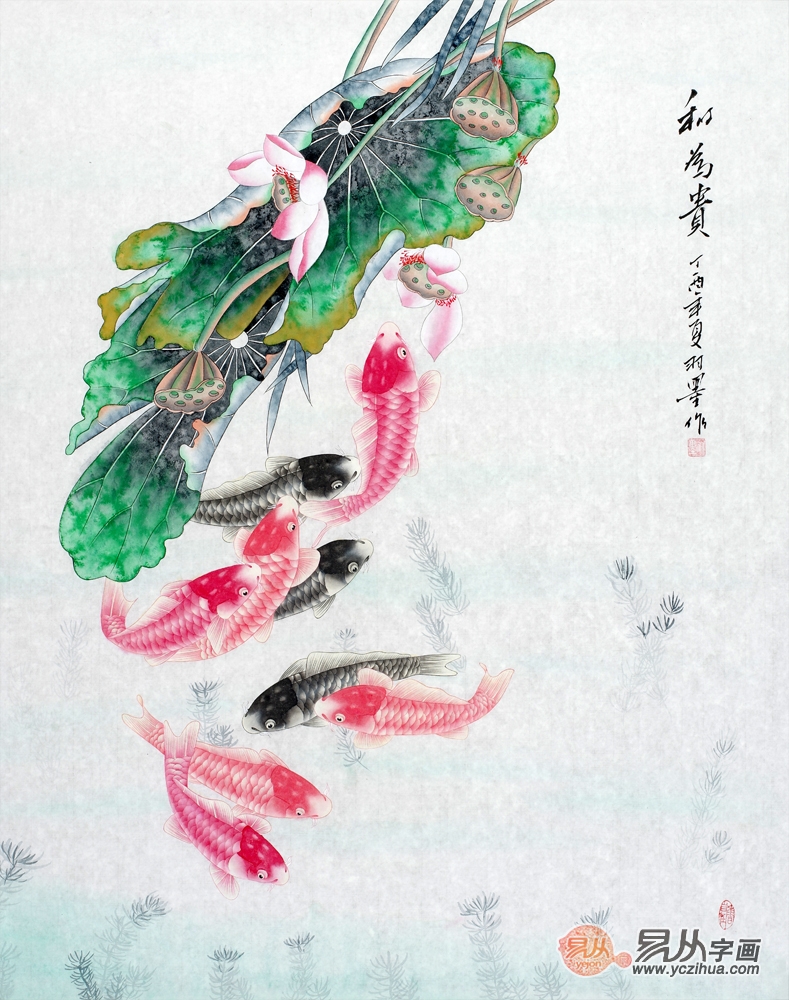 和為貴
丁酉年夏羽墨作
易从
yejon
易从字画
www.yczihua.com